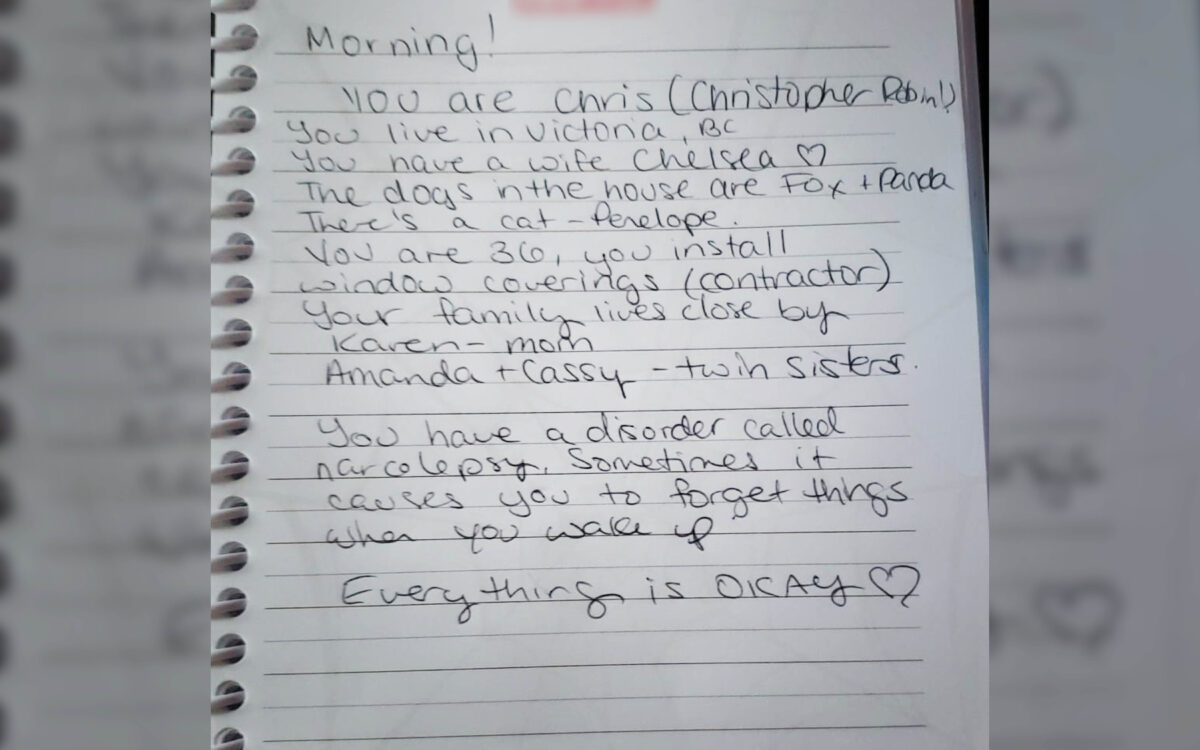 Morning!
You are Chris (Christopher Robin!)
You live in Victoria, BC
You have a wife Chelsea ♡
The dogs in the house are Fox + Panda
There's a cat - Penelope.
You are 36, you install
window coverings (contractor)
Your family lives close by
Karen - mom
Amanda + Cassy - twin sisters.
You have a disorder called
narcolepsy. Sometimes it
causes you to forget things
when you wake up
Everything is OKAY ♡